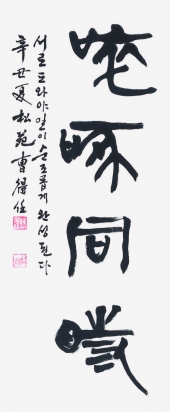 啐啄同時
서로 도와야 일이 순조롭게 완성된다
辛丑夏 松苑 曹得任